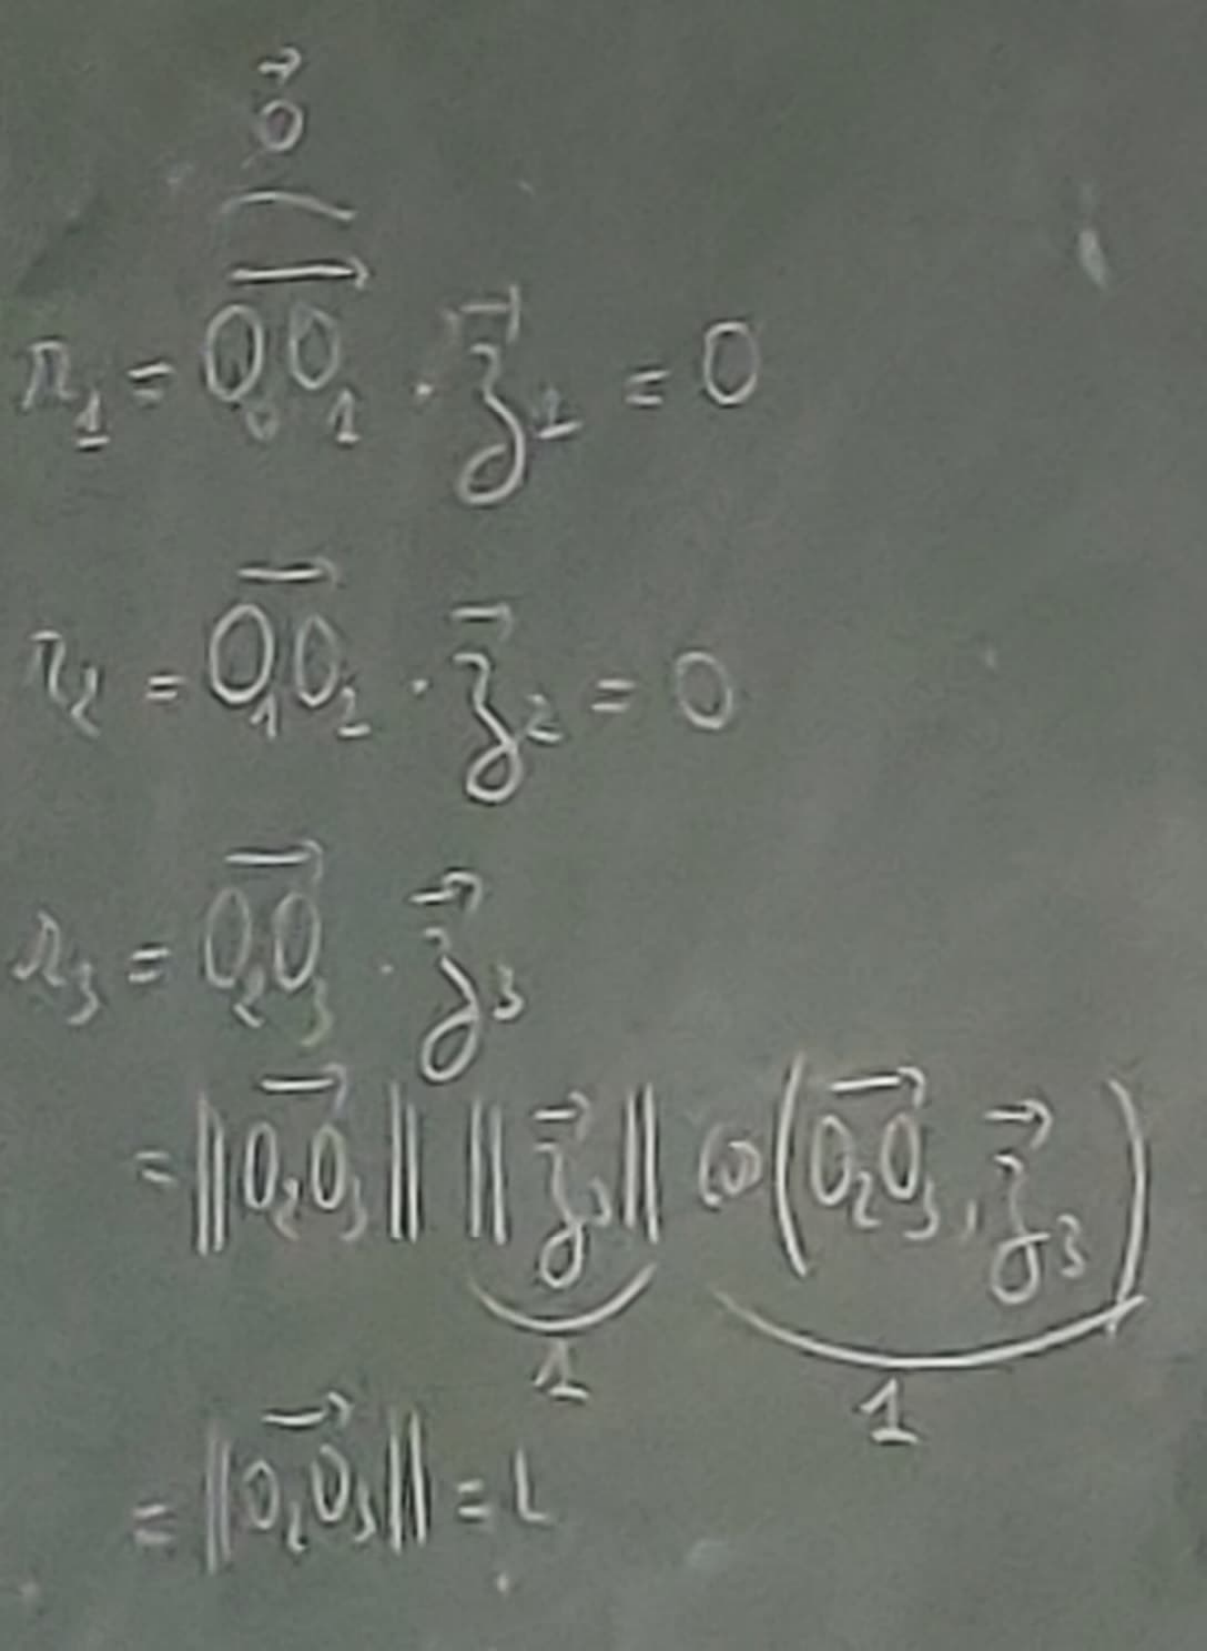 $\vec{0}$
$r_1 = \overbrace{\overrightarrow{O_0O_1}} \cdot \vec{z}_1 = 0$
$r_2 = \overrightarrow{O_1O_2} \cdot \vec{z}_2 = 0$
$r_3 = \overrightarrow{O_2O_3} \cdot \vec{z}_3$
$= \|\overrightarrow{O_2O_3}\| \underbrace{\|\vec{z}_3\|} \underbrace{\cos(\overrightarrow{O_2O_3}, \vec{z}_3)}$
1 1
$= \|\overrightarrow{O_2O_3}\| = L$